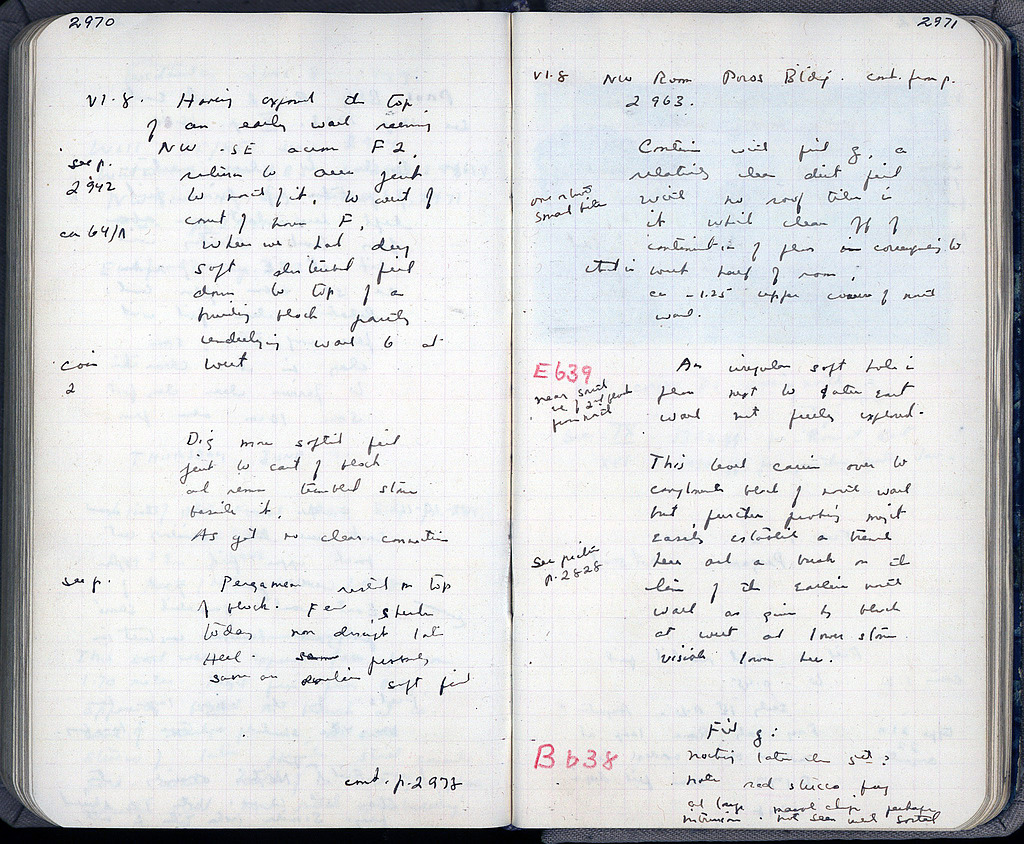 2970
VI·8. Having exposed the top
of an early wall running
NW-SE across F2,
see p.
2942
return to area just
to north of it, to west of
court of room F,
ca 64/Λ
where we had dug
soft disturbed fill
down to top of a
block partly
underlying wall 6 at
west
coin
2
Dig more softish fill
just to east of block
and remove tumbled stone
beside it.
As yet no clear connection
see p.
Pergamene rested on top
of block. Few sherds
today non descript late
Hell. possibly
same as earlier soft fill
cont. p. 2978
2971
VI·8 NW Room Poros Bldg. cont. from p.
2963.
Continue with fill g, a
relatively clean dirt fill
one or two
small tiles
with no roof tiles in
it which clean off of
continuation of floor corresponding to
that in west half of room,
ca -1.25 upper of north
wall.
E639
near south
An irregular soft hole in
floor next to later east
wall not fully explored.
from north
This level carries over to
conglomerate block of north wall
but further probing might
easily establish a trench
here and a break on the
see picture
p. 2828
line of the earlier north
wall as given by block
at west and lower stone
visible lower here.
Fill g:
B 638
nothing later than
note red stucco frag
and large marble chip, perhaps
intrusion. not seen until sorted